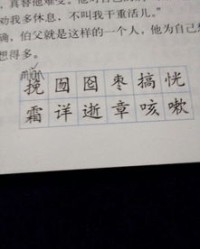 劝我多休息，不叫我干重活儿。”
确，伯父就是这样的一个人，他为自己想
想得多。
挽囫囵枣搞恍
霜详逝章咳嗽